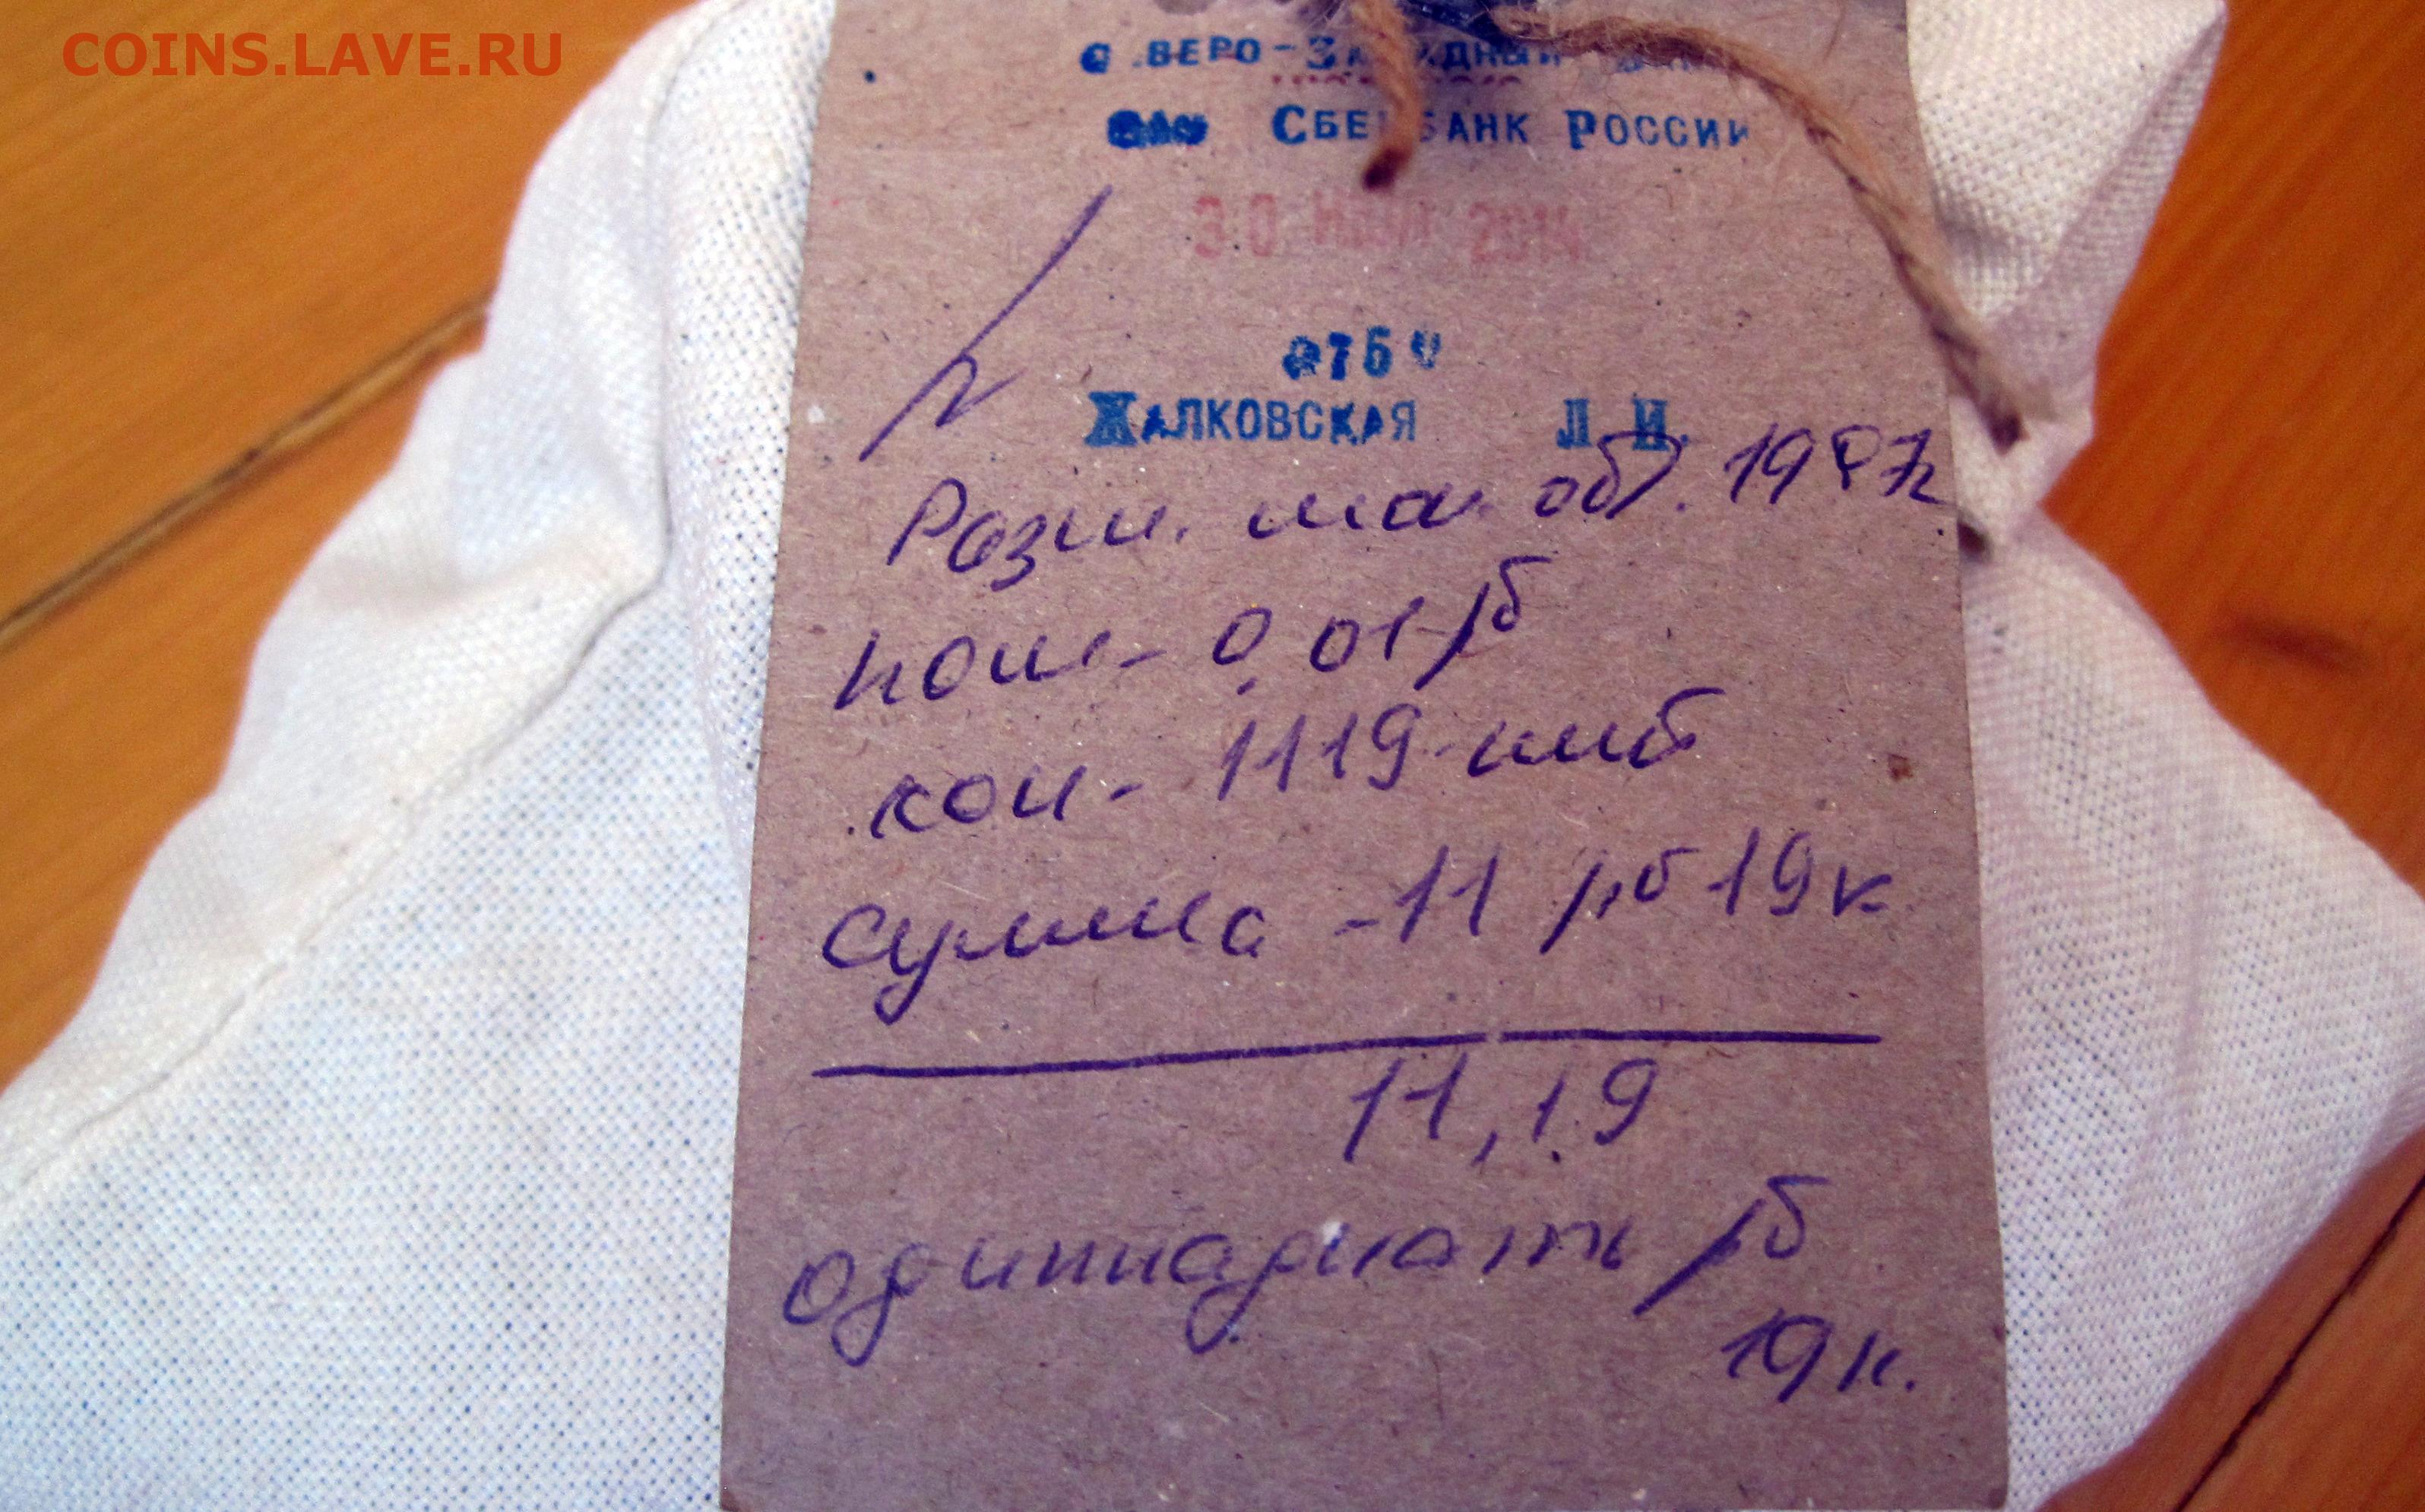 COINS.LAVE.RU
СЕВЕРО-ЗАПАДНЫЙ БАНК
ОАО СБЕРБАНК РОССИИ
30 2014
ЖАЛКОВСКАЯ Л.И.
Разм. мон. обр. 1997г
ном - 0,01 рб
кол - 1119 шт
сумма - 11 рб 19 к
11,19
одиннадцать рб
19 к.